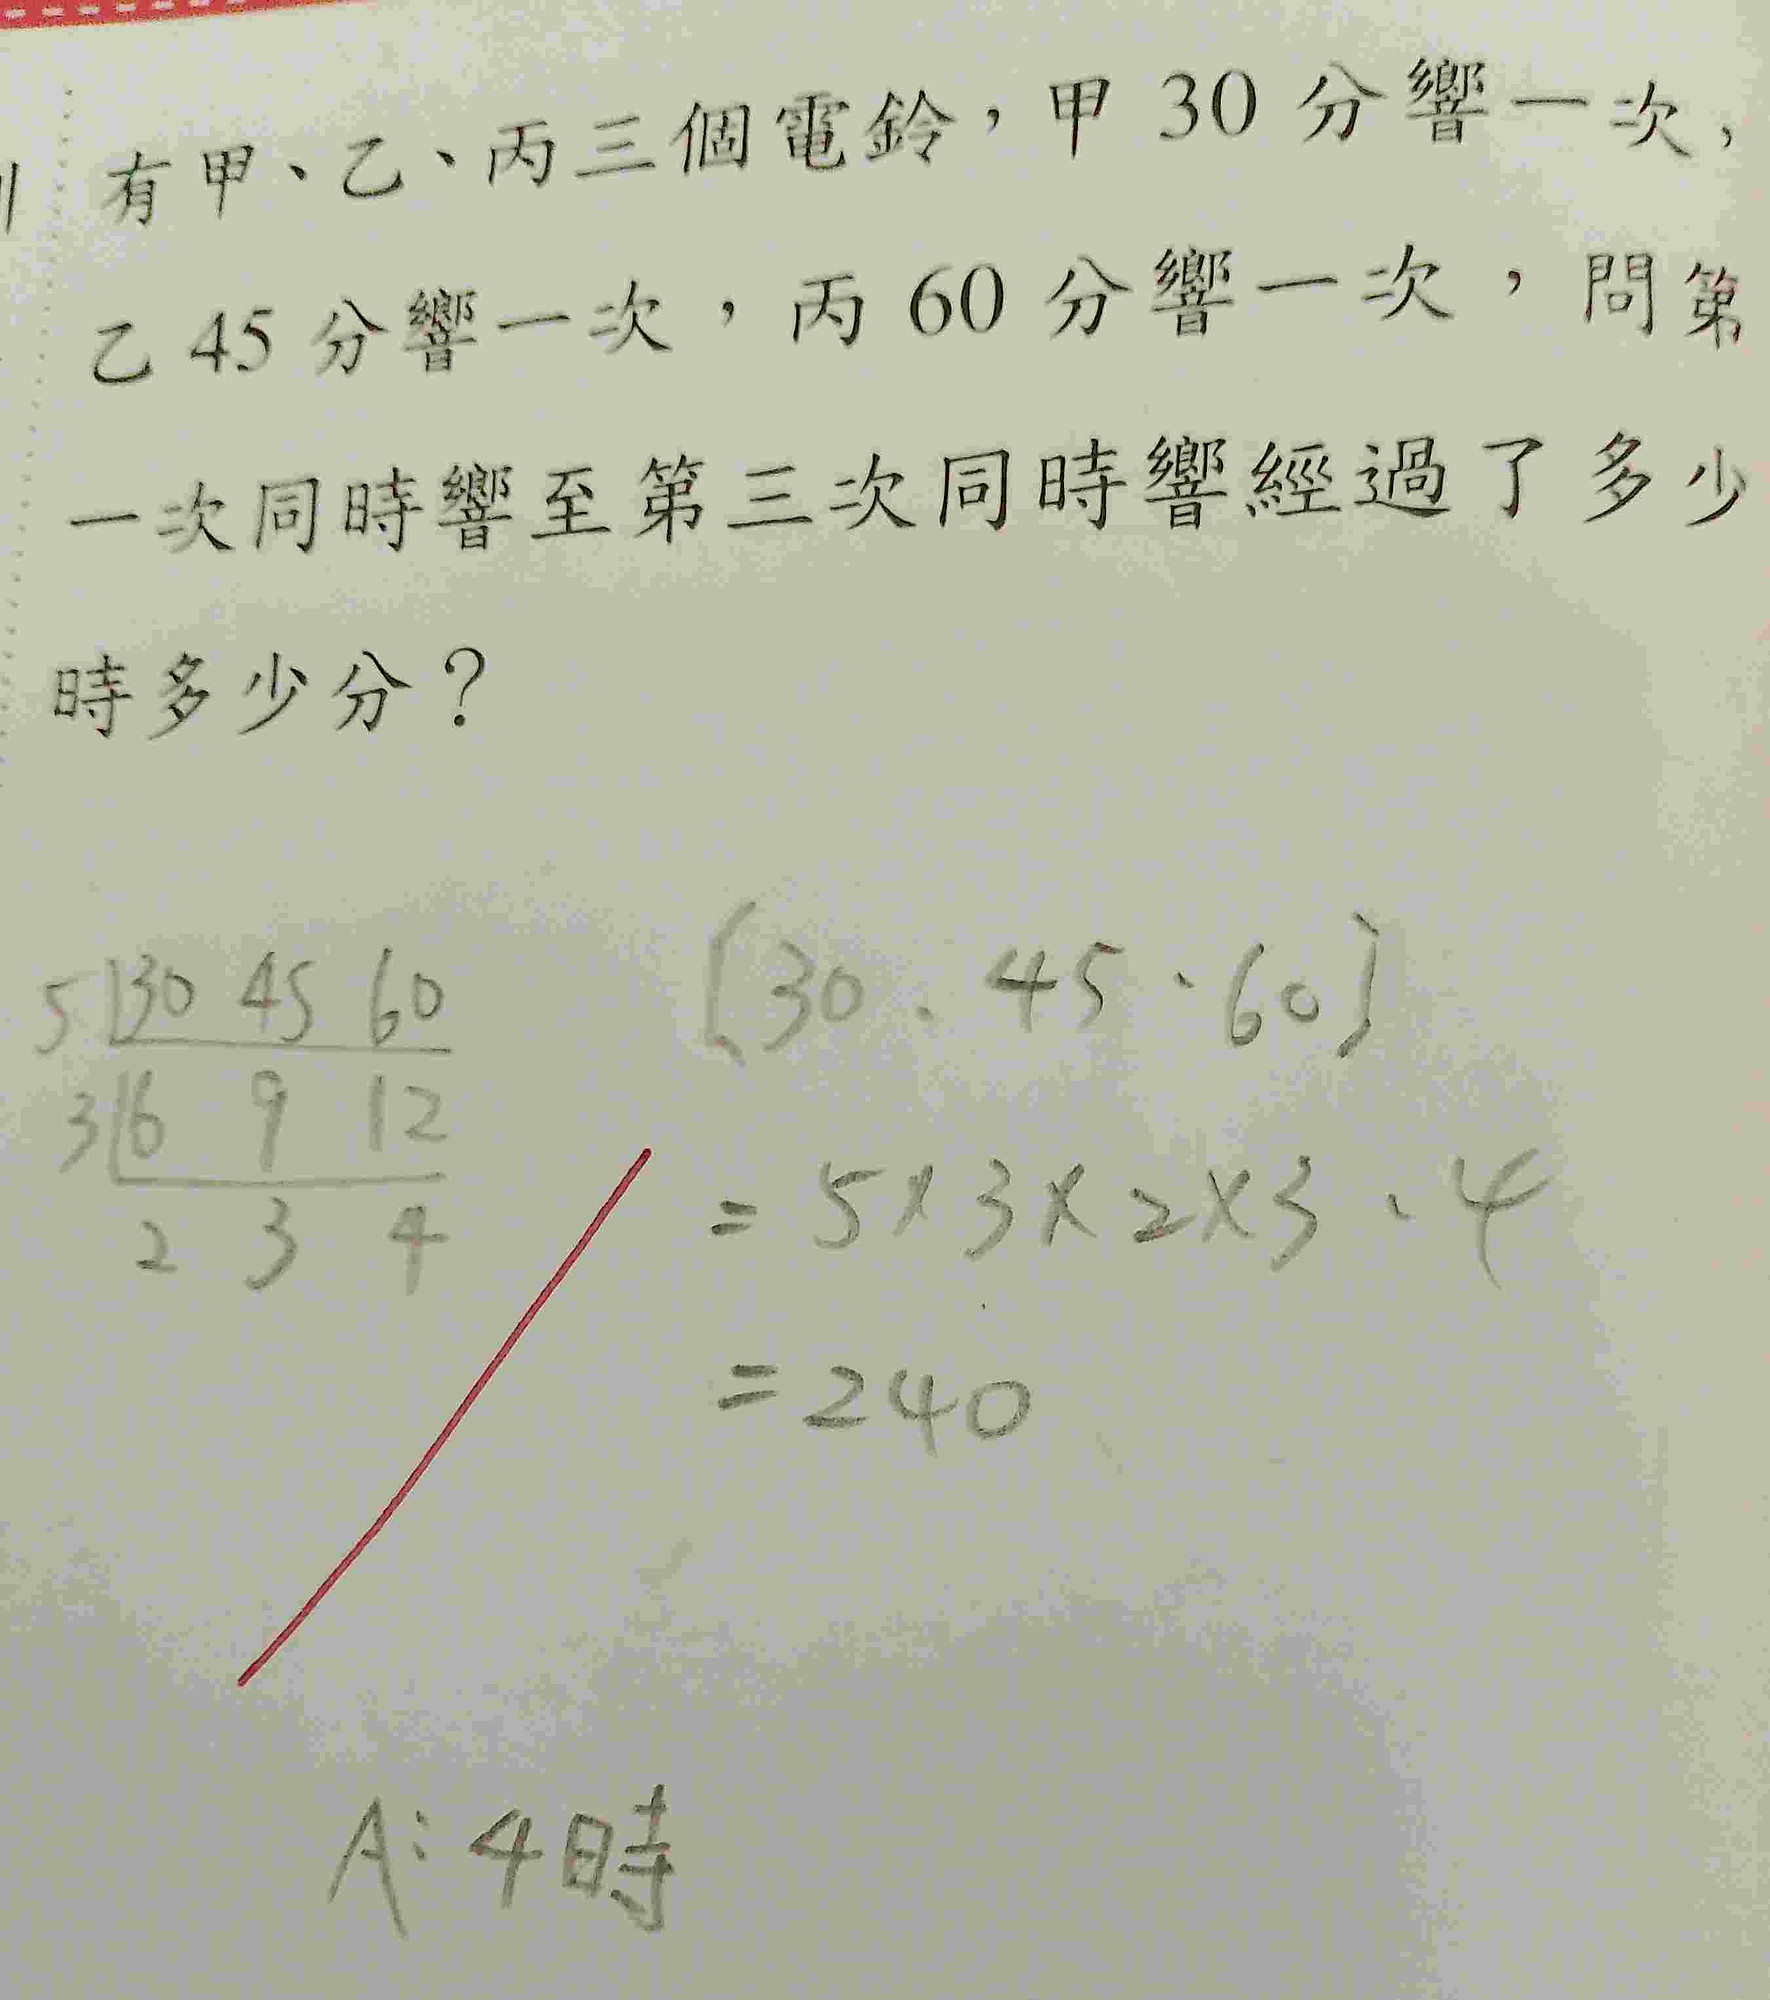 有甲、乙、丙三個電鈴，甲 30 分響一次，
乙 45 分響一次，丙 60 分響一次，問第
一次同時響至第三次同時響經過了多少
時多少分？
5 30 45 60
3 6 9 12
2 3 4
[30、45、60]
= 5×3×2×3、4
= 240
A: 4時